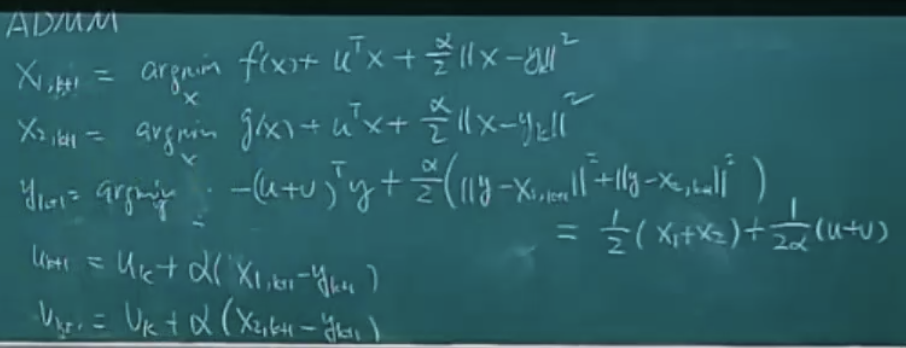 ADMM
x_{1,k+1} = argmin_x f(x) + u^T x + α/2 ||x - y_k||^2
x_{2,k+1} = argmin_x g(x) + u^T x + α/2 ||x - y_k||^2
y_{k+1} = argmin_y -(u+v)^T y + α/2 (||y - x_{1,k+1}||^2 + ||y - x_{2,k+1}||^2)
= 1/2 (x_1 + x_2) + 1/2α (u+v)
u_{k+1} = u_k + α(x_{1,k+1} - y_{k+1})
v_{k+1} = v_k + α(x_{2,k+1} - y_{k+1})